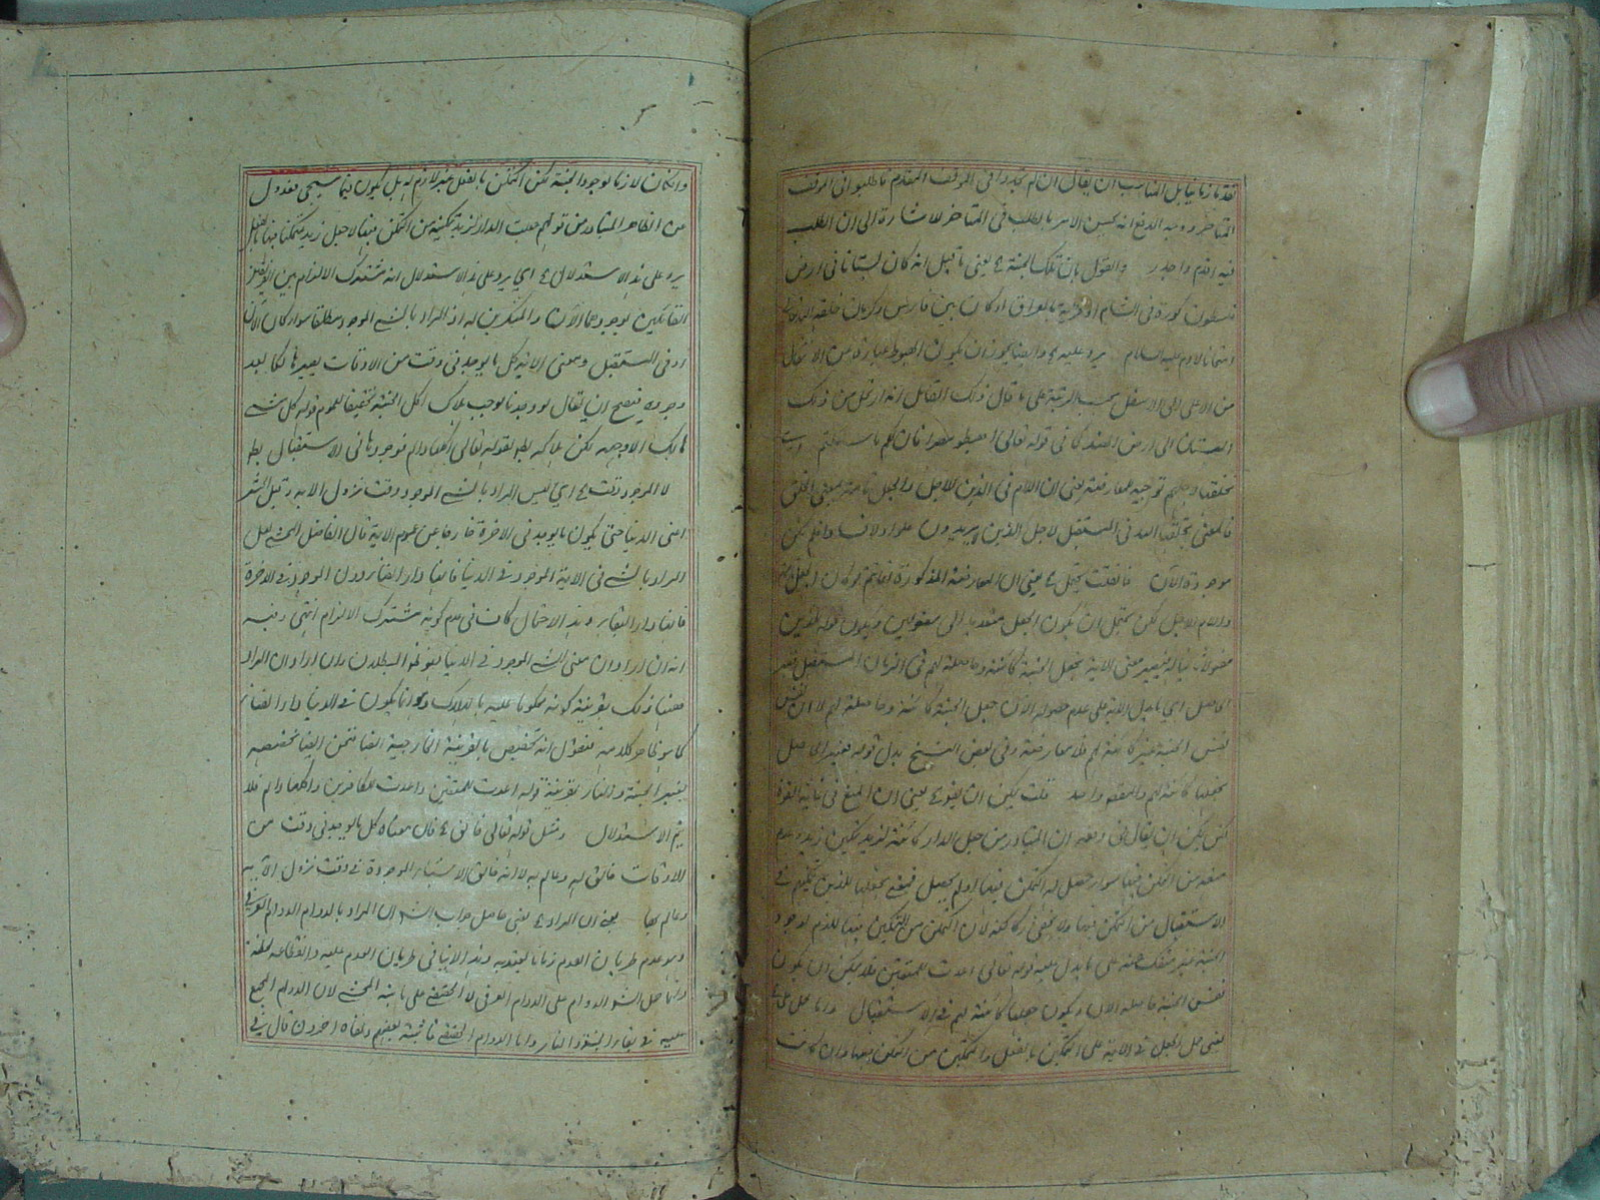 تقدما زمانيا بل المناسب ان يقال ان لم تجدوا في الموقف المقدم فاطلبوا في الموقف
المتاخر ووجه الدفع انه يحسن الامر بالطلب في المتاخر للاشارة الى ان الطلب
فيه اقدم واجدر والقول بان تلك الجنة ع يعني ما قيل انه كان بستانا في ارض
فلسطين كورة في الشام او قرية بالعراق او كان بين فارس وكرمان خلقه الله تعالى
امتحانا لادم عليه السلام يرد عليه ع وايضا يجوز ان يكون الهبوط عبارة من الانتقال
من الاعلى الى الاسفل بحسب الرتبة على ما قال ذلك القائل انه ارتحل من ذلك
البستان الى ارض الهند كما في قوله تعالى اهبطوا مصرا فان لكم ما سالتم
نخلقها لاجلهم توجيه للمعارضة يعني ان اللام في الذين للاجل والجعل تامة بمعنى الخلق
فالمعنى نخلقها لله في المستقبل لاجل الذين لا يريدون علوا ولا فسادا فلم تكن
موجودة الان فان قلت يحتمل ع يعني ان المعارضة المذكورة انما تتم لو كان الجعل
واللام للاجل لكن يحتمل ان يكون الجعل متعديا الى مفعولين ويكون قوله للذين
مفعولا ثانيا له فيصير معنى الاية نجعل الجنة كائنة وحاصلة لهم في الزمان المستقبل
الحاصل اي ما يدل الاية على عدم حصوله الان جعل الجنة كائنة وحاصلة لهم لا ان نفس
نفس الجنة غير كائنة لهم فلا معارضة وفي بعض النسخ بدل قوله فغير الحاصل
نجعلها كائنة لهم والمقصود واحد قلت يمكن ان يقوع يعني ان المنع في غاية القوة
لكن يمكن ان يقال في دفعه ان المتبادر من جعل الدار كائنة لزيد تمكين زيد وعدم
منعه من التمكن فيها سواء حصل له التمكن فيها او لم يحصل فمعنى نجعلها للذين نمكنهم في
الاستقبال من التمكن فيها ولا يخفى ركاكته لان التمكن من التمكين فيها لازم لوجود
الجنة غير منفك عنه على ما يدل عليه قوله تعالى اعدت للمتقين فلا يمكن ان يكون
نفس الجنة حاصلة الان ويكون جعلها كائنة لهم في الاستقبال واما حمل
يعني حمل الجعل في الاية على التمكين بالفعل والتمكين من التمكن فيها وان كانت
وان كان لازما لوجود الجنة لكن التمكن بالفعل غير لازم له بل يكون فيما سيجيء فعدول
من الظاهر المتبادر من قولهم جعلت الدار لزيد تمكينه من التمكن فيها لا جعل زيد متمكنا فيها بالفعل
يرد على هذا الاستدلال ع اي يرد على هذا الاستدلال انه مشترك الالزام بين الفريقين
القائلين بوجودهما الان والمنكرين له اذ المراد بالشيء الموجود مطلقا سواء كان الان
او في المستقبل ومعنى الاية كل ما يوجد في وقت من الاوقات يصير هالكا بعد
وجوده فيصح ان يقال لو وجدتا لوجب هلاك اكل الجنة تحقيقا لعموم قوله كل شيء
هالك الا وجهه لكن هلاكه بطل لقوله تعالى اكلها دائم فوجودها في الاستقبال بطل
لا الموجود وقت ع اي ليس المراد بالشيء الموجود وقت نزول الاية وقيل
اعني الدنيا حتى يكون ما يوجد في الاخرة خارجا عن عموم الاية قال الفاضل المحشي لعل
المراد بالشيء في الاية الموجود في الدنيا فانها دار الفناء دون الموجود في الاخرة
فانها دار البقاء وهذا الاحتمال كان في عدم كونه مشترك الالزام انتهى وفيه
انه ان اراد ان معنى الشيء الموجود في الدنيا فهو ظاهر البطلان وان اراد ان المراد
ههنا ذلك بقرينة كونه محكوما عليه بالهلاك وهو انما يكون في الدنيا دار الفناء
كما هو ظاهر كلامه فنقول انه تخصيص بالقرينة الخارجية ايضا فنحن ايضا نخصصه
بغير الجنة والنار بقرينة قوله اعدت للمتقين واعدت للكافرين واكلها دائم فلا
يتم الاستدلال ومثل قوله تعالى خالق ع فان معناه كل ما يوجد في وقت من
الاوقات خالق له وعالم به لا انه خالق الاشياء الموجودة في وقت نزول الاية
وعالم بها يعني ان المراد ع يعني حاصل جواب الشرح ان المراد بالدوام الدوام العرفي
وهو عدم طريان العدم زمانا يعتد به وهذا لا ينافي طريان العدم عليه وانقطاعه لحظة
وانما حمل الشرح الدوام على الدوام العرفي لا الحقيقي على ما بينه المحشي لان الدوام المجمع
عليه في بقاء الجنة والنار واما الدوام الحقيقي فاثبته بعضهم ونفاه اخرون قال في